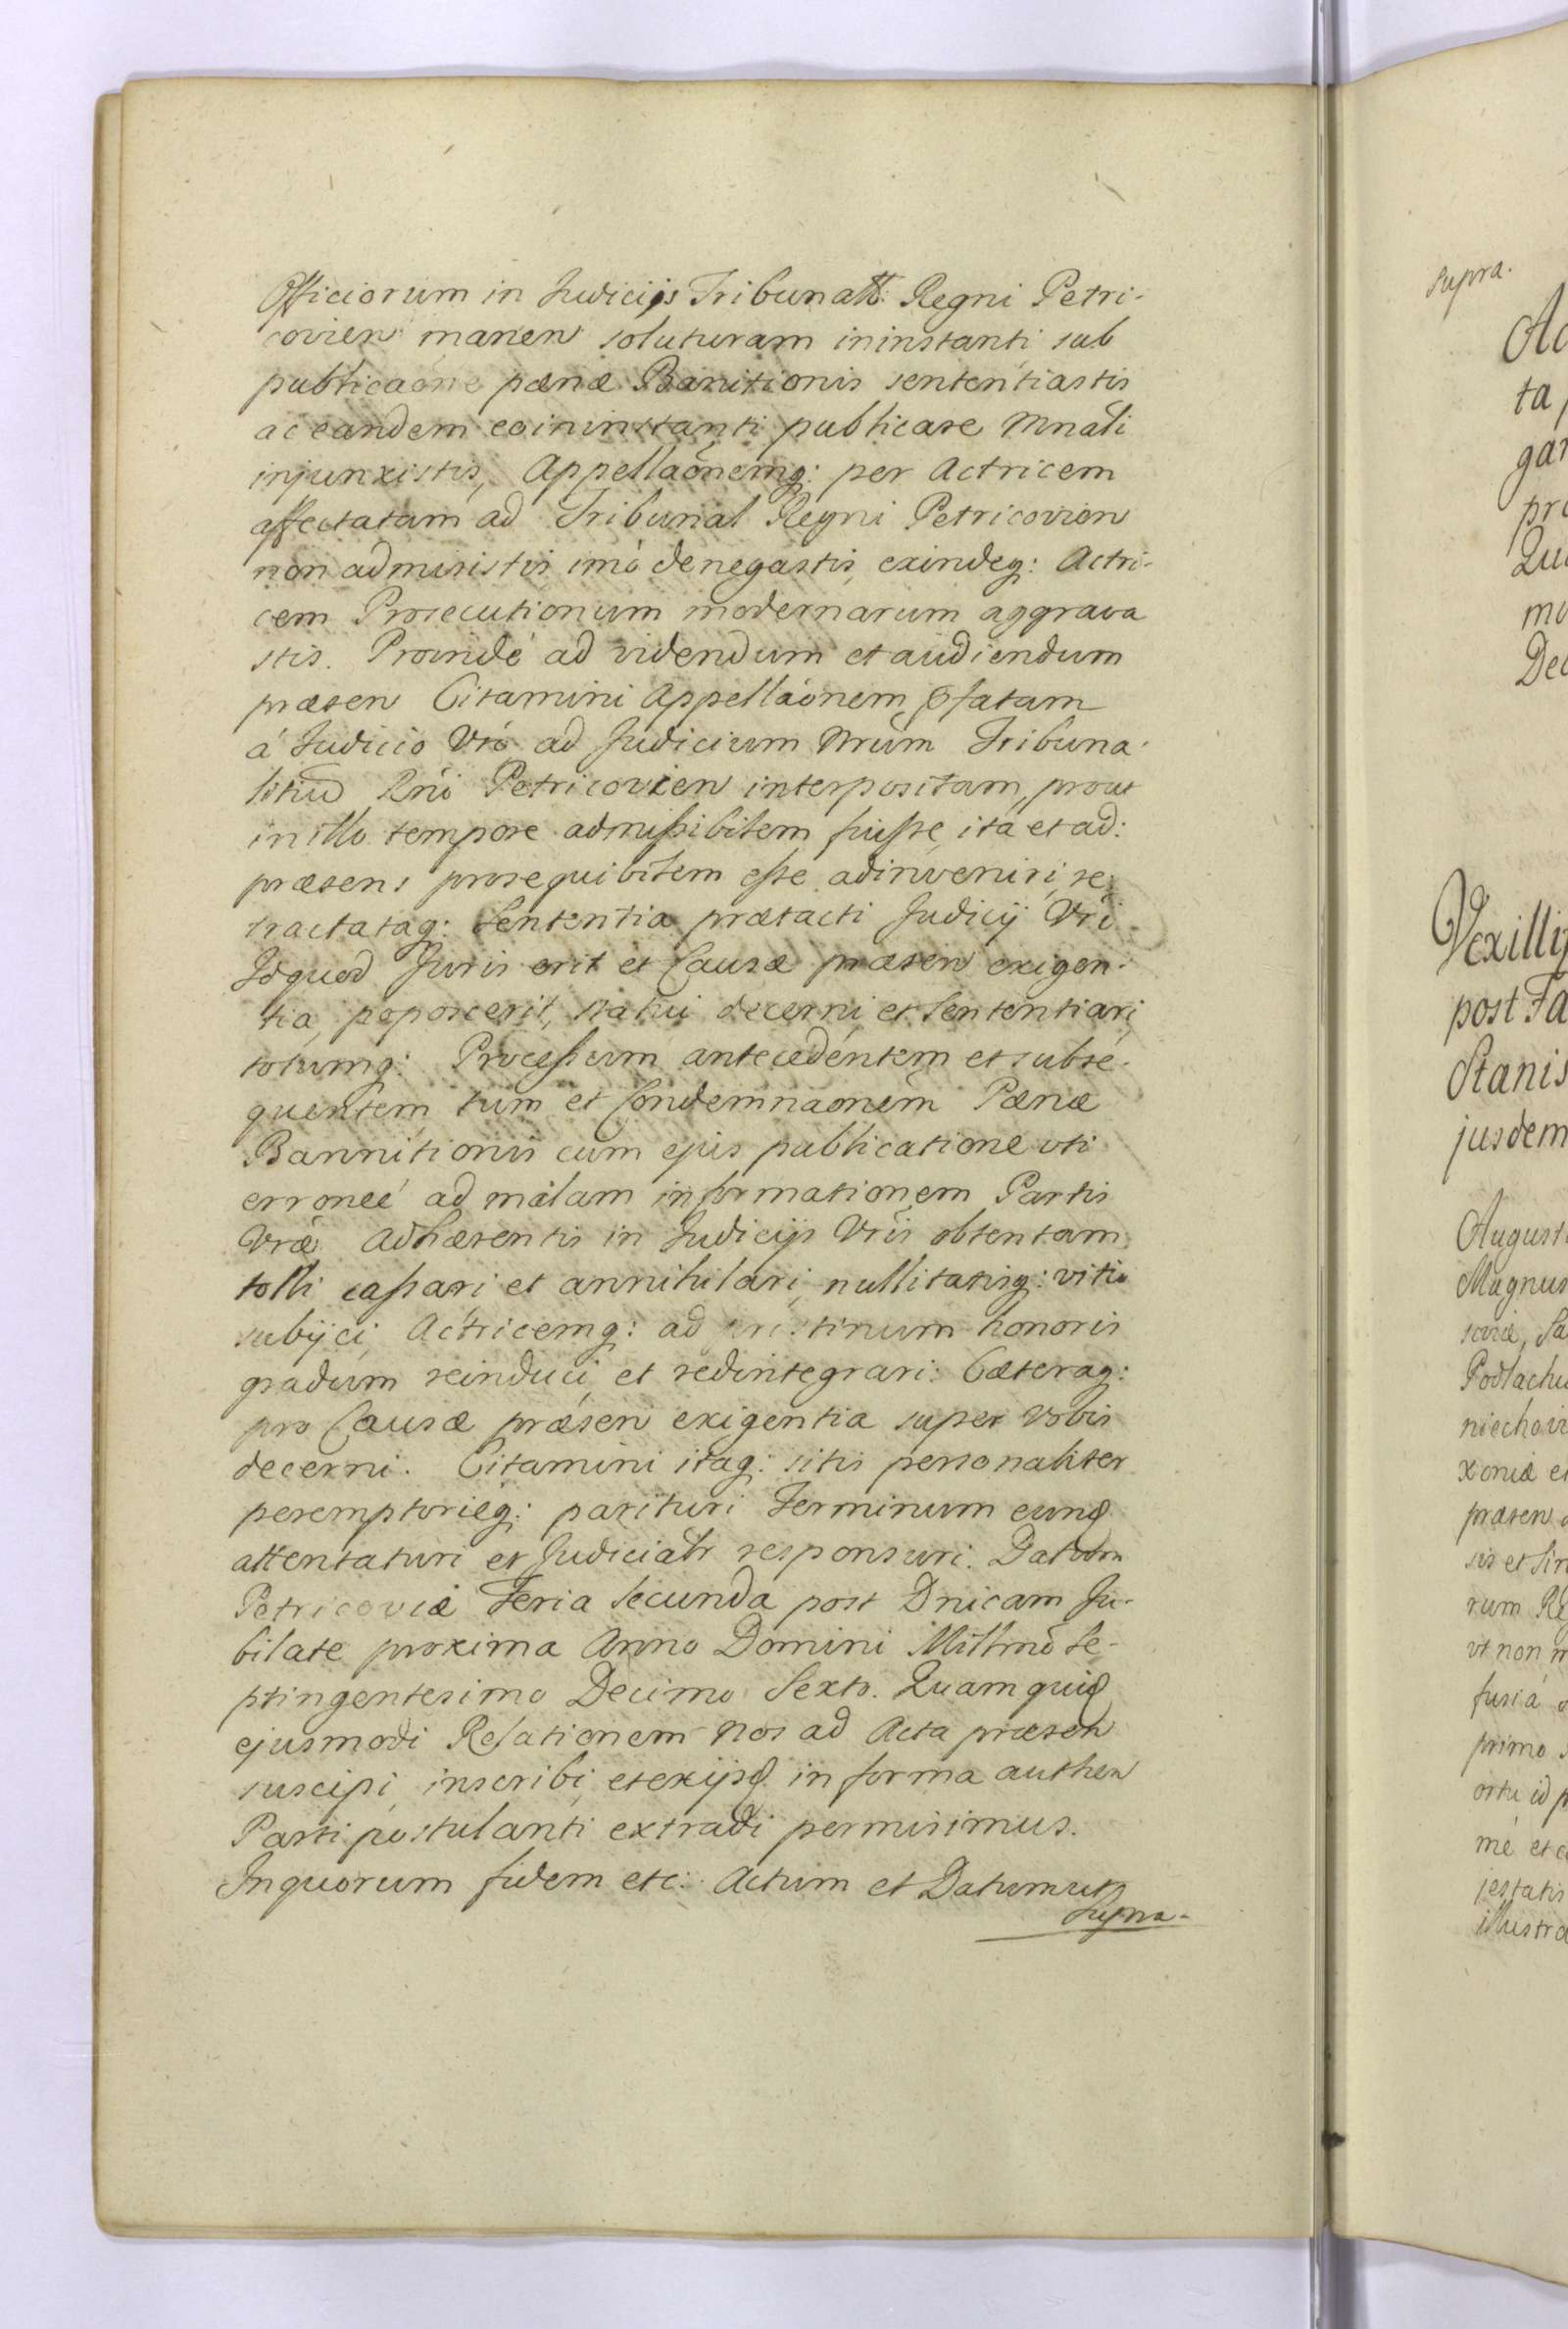 Officiorum in Judicijs Tribunatt: Regni Petri-
covien manen soluturam ininstanti sub
publicaõne pænæ Banitionis sententiastis
ac eandem eoininstanti publicare Mnãli
injunxistis, Appellaõnemq: per Actricem
affectatam ad Tribunal Regni Petricovien
non admisistis imò denegastis, exindeq: Actri-
cem Prosecutionum modernarum aggrava
stis. Proindè ad videndum et audiendum
præsen Citamini Appellaõnem pfatam
á Judicio Vrõ ad Judicium Nrũm Tribuna-
litiũ Rnĩ Petricovien interpositam, prout
in illo tempore admissibilem fuisse, ita et ad:
præsens prosequibilem esse adinveniri, re:
tractataq: Sententia prætacti Judicij Vrĩ
Id quod Juris erit et Causæ præsen exigen-
tia, poposcerit, statui decerni, et Sententiari,
totumq: Processum antecedentem et subse-
quentem, tum et Condemnaõnem Pænæ
Bannitionis cum ejus publicatione uti
erroneé ad malam informationem Partis
Vræ Adhærentis in Judicijs Vrĩs obtentam
tolli cassari et annihilari, nullitatisq: vitio
subijci, Actricemq: ad pristinum honoris
gradum reinduci, et redintegrari: Cæteraq:
pro Causæ præsen exigentia super vobis
decerni. Citamini itaq: sitis personaliter
peremptorièq: parituri Terminum eunq
attentaturi et Judicialr responsuri. Datum
Petricoviæ Feria Secunda post Dnicam Ju-
bilate proxima Anno Domini Millmõ Se-
ptingentesimo Decimo Sexto. Quam quiq
ejusmodi Relationem nos ad Acta præsen
suscipi, inscribi, et exijsq in forma authen
Parti postulanti extradi permisimus.
Inquorum fidem etc: Actum et Datum ut
Supra.
supra.
Ac
ta
gar
pro
Qu
mo
Dec
Vexilli
post Fa
Stanis
jusdem
August
Magnus
soviæ, Sa
Podlachi
niechovi
xoniæ et
præsen
sis et Sin
rum Re
ut non m
fusi á
primo
ortu id p
mé et
jestatis
illustra